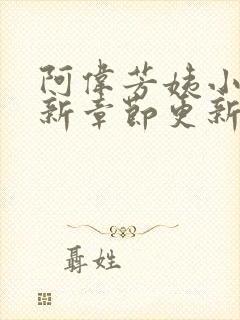 阿偉芳姨小
新章節更新
聶姓